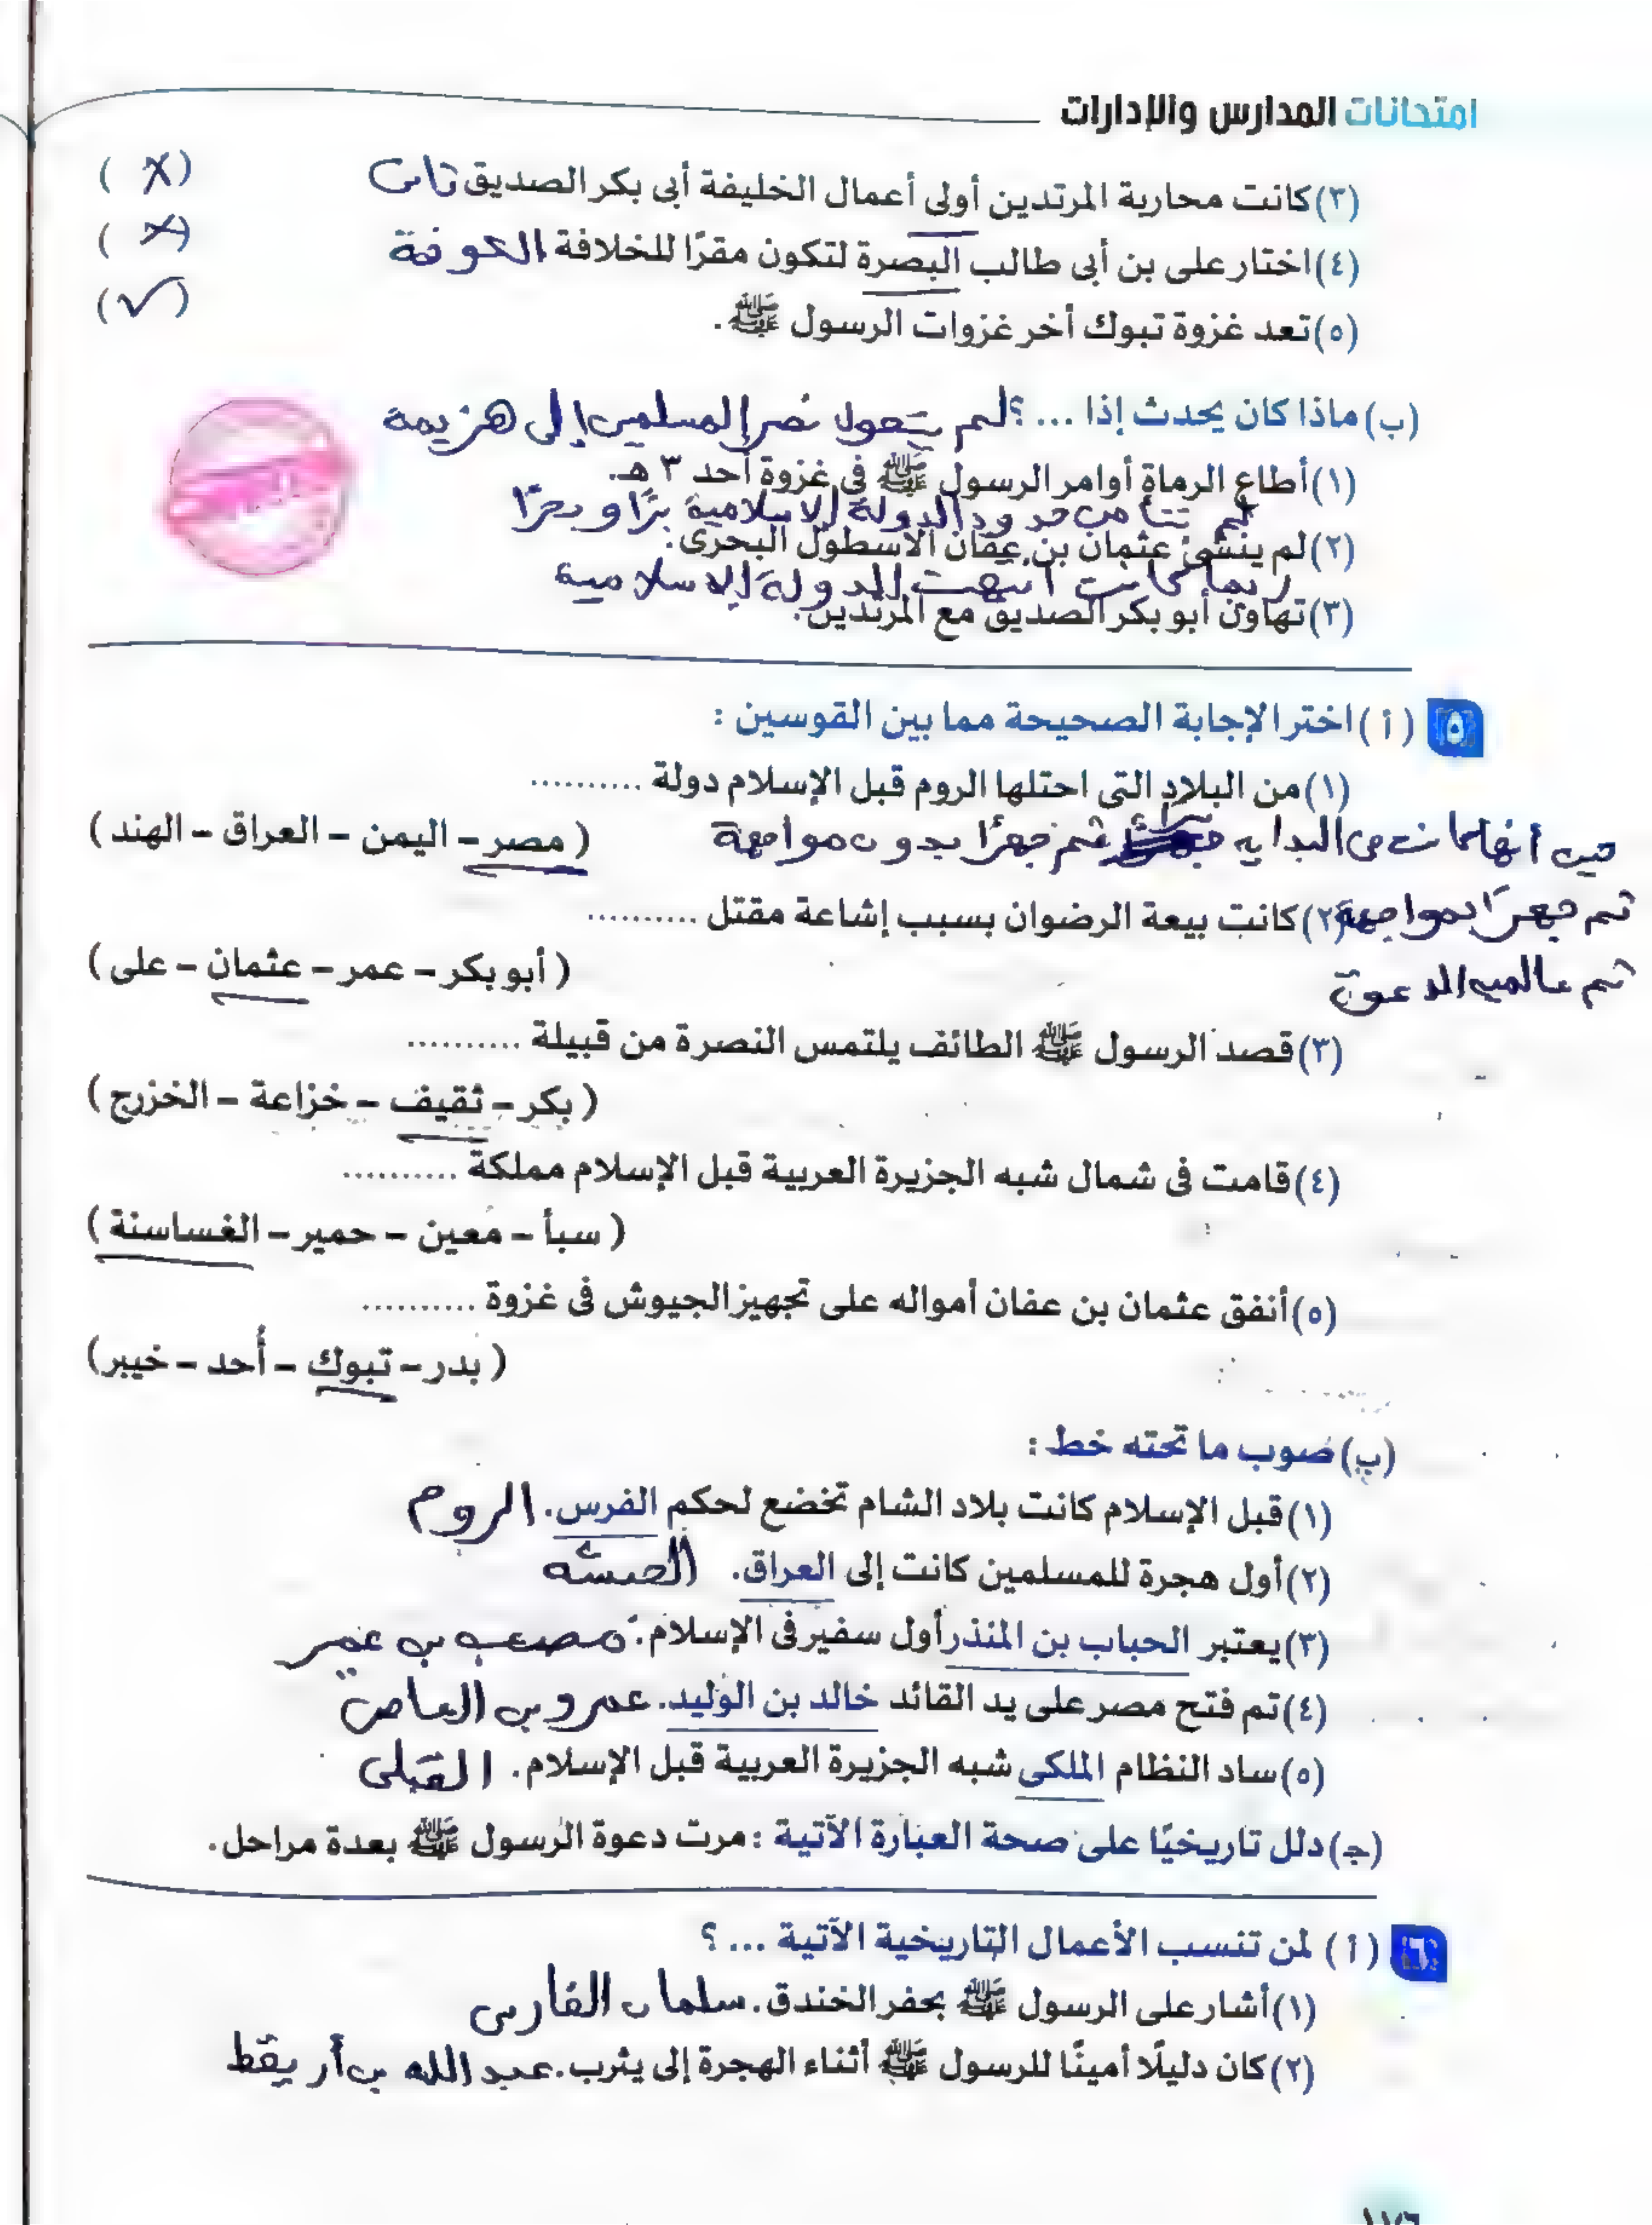 امتحانات المدارس والإدارات
(٣) كانت محاربة المرتدين أولى أعمال الخليفة أبى بكر الصديق ثانى ( X )
(٤) اختار على بن أبى طالب البصرة لتكون مقرًا للخلافة الكوفة ( X )
(٥) تعد غزوة تبوك أخر غزوات الرسول ﷺ. ( ✓ )
(ب) ماذا كان يحدث إذا ... ؟ لم يتحول نصر المسلمين إلى هزيمة
(١) أطاع الرماة أوامر الرسول ﷺ فى غزوة أحد ٣ هـ.
لم تتأمن حدود الدولة الاسلامية برًا وبحرًا
(٢) لم ينشئ عثمان بن عفان الأسطول البحرى.
ربما كانت انتهت الدولة الاسلامية
(٣) تهاون أبو بكر الصديق مع المرتدين.
٥ (أ) اختر الإجابة الصحيحة مما بين القوسين :
(١) من البلاد التى احتلها الروم قبل الإسلام دولة ..........
( مصر – اليمن – العراق – الهند )
حيث أنها كانت فى البدايه سرًا ثم جهرًا بدون مواجهة
(٢) كانت بيعة الرضوان بسبب إشاعة مقتل ..........
ثم جهرًا بمواجهة
( أبو بكر – عمر – عثمان – على )
ثم عالمية الدعوة
(٣) قصد الرسول ﷺ الطائف يلتمس النصرة من قبيلة ..........
( بكر – ثقيف – خزاعة – الخزرج )
(٤) قامت فى شمال شبه الجزيرة العربية قبل الإسلام مملكة ..........
( سبأ – معين – حمير – الغساسنة )
(٥) أنفق عثمان بن عفان أمواله على تجهيز الجيوش فى غزوة ..........
( بدر – تبوك – أُحد – خيبر )
(ب) صوب ما تحته خط :
(١) قبل الإسلام كانت بلاد الشام تخضع لحكم الفرس. الروم
(٢) أول هجرة للمسلمين كانت إلى العراق. الحبشه
(٣) يعتبر الحباب بن المنذر أول سفير فى الإسلام. مصعب بن عمير
(٤) تم فتح مصر على يد القائد خالد بن الوليد. عمرو بن العاص
(٥) ساد النظام الملكى شبه الجزيرة العربية قبل الإسلام. القبلى
(جـ) دلل تاريخيًا على صحة العبارة الآتية : مرت دعوة الرسول ﷺ بعدة مراحل.
٦ (أ) لمن تنسب الأعمال التاريخية الآتية ... ؟
(١) أشار على الرسول ﷺ بحفر الخندق. سلمان الفارسى
(٢) كان دليلًا أمينًا للرسول ﷺ أثناء الهجرة إلى يثرب. عبد الله بن أريقط